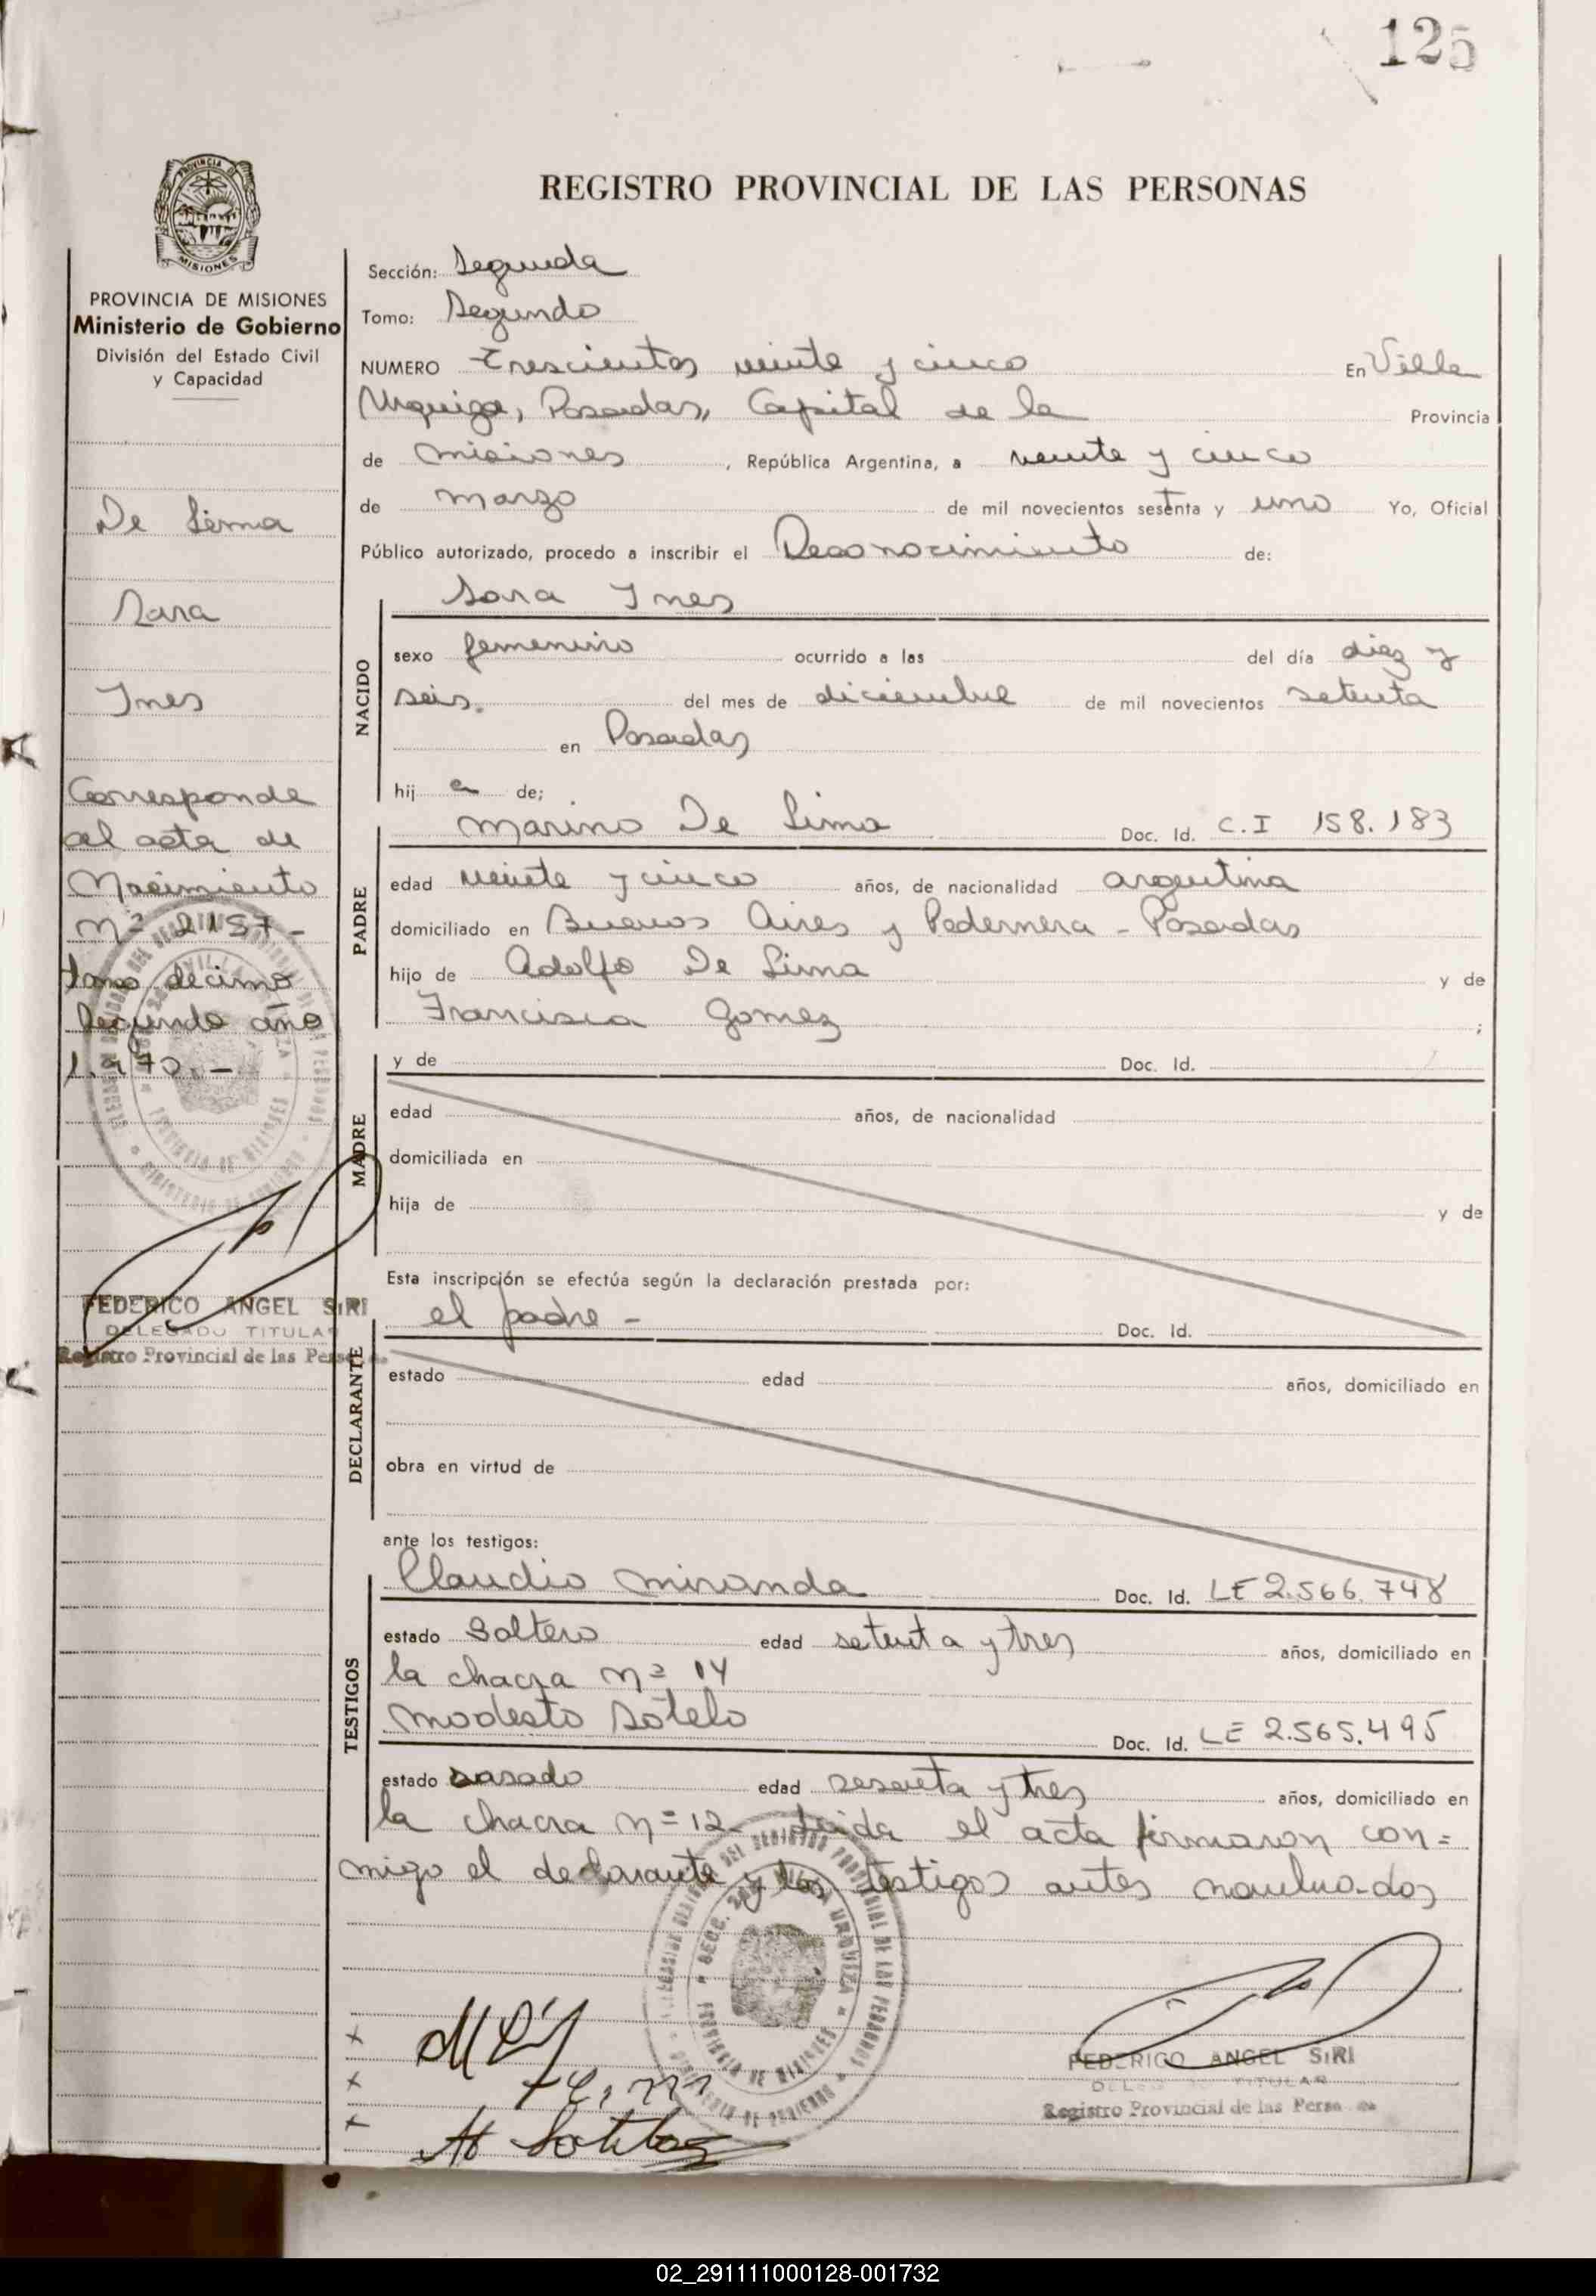 125
REGISTRO PROVINCIAL DE LAS PERSONAS
PROVINCIA DE MISIONES
Ministerio de Gobierno
División del Estado Civil
y Capacidad
De Lima
Sara
Ines
Corresponde
al acta de
Nacimiento
Nº 2157-
tomo décimo
Segundo año
1.970.-
FEDERICO ANGEL SIRI
DELEGADO TITULAR
Registro Provincial de las Perso
Sección: Segunda
Tomo: Segundo
NUMERO Trescientos veinte y cinco En Villa
Urquiza, Posadas, Capital de la Provincia
de misiones, República Argentina, a veinte y cinco
de marzo de mil novecientos setenta y uno Yo, Oficial
Público autorizado, procedo a inscribir el Reconocimiento de:
NACIDO
Sara Ines
sexo femenino ocurrido a las del día diez y
seis. del mes de diciembre de mil novecientos setenta
en Posadas
hij a de;
PADRE
Marino De Lima Doc. Id. C.I 158.183
edad veinte y cinco años, de nacionalidad argentina
domiciliado en Buenos Aires y Pedernera - Posadas
hijo de Adolfo De Lima y de
Francisca Gomez ;
MADRE
y de Doc. Id.
edad años, de nacionalidad
domiciliada en
hija de y de
Esta inscripción se efectúa según la declaración prestada por:
DECLARANTE
el padre - Doc. Id.
estado edad años, domiciliado en
obra en virtud de
ante los testigos:
TESTIGOS
Claudio Miranda Doc. Id. LE 2.566.748
estado Soltero edad setenta y tres años, domiciliado en
la chacra nº 14
Modesto Sotelo Doc. Id. LE 2.565.495
estado casado edad sesenta y tres años, domiciliado en
la chacra nº 12- Leida el acta firmaron con=
migo el declarante y los testigos antes nombrados
FEDERICO ANGEL SIRI
TITULAR
Registro Provincial de las Perso
02_291111000128-001732